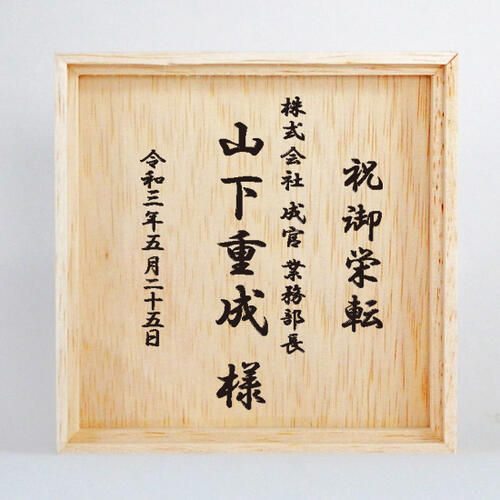 祝御栄転
株式会社 成官 業務部長
山下重成 様
令和三年五月二十五日